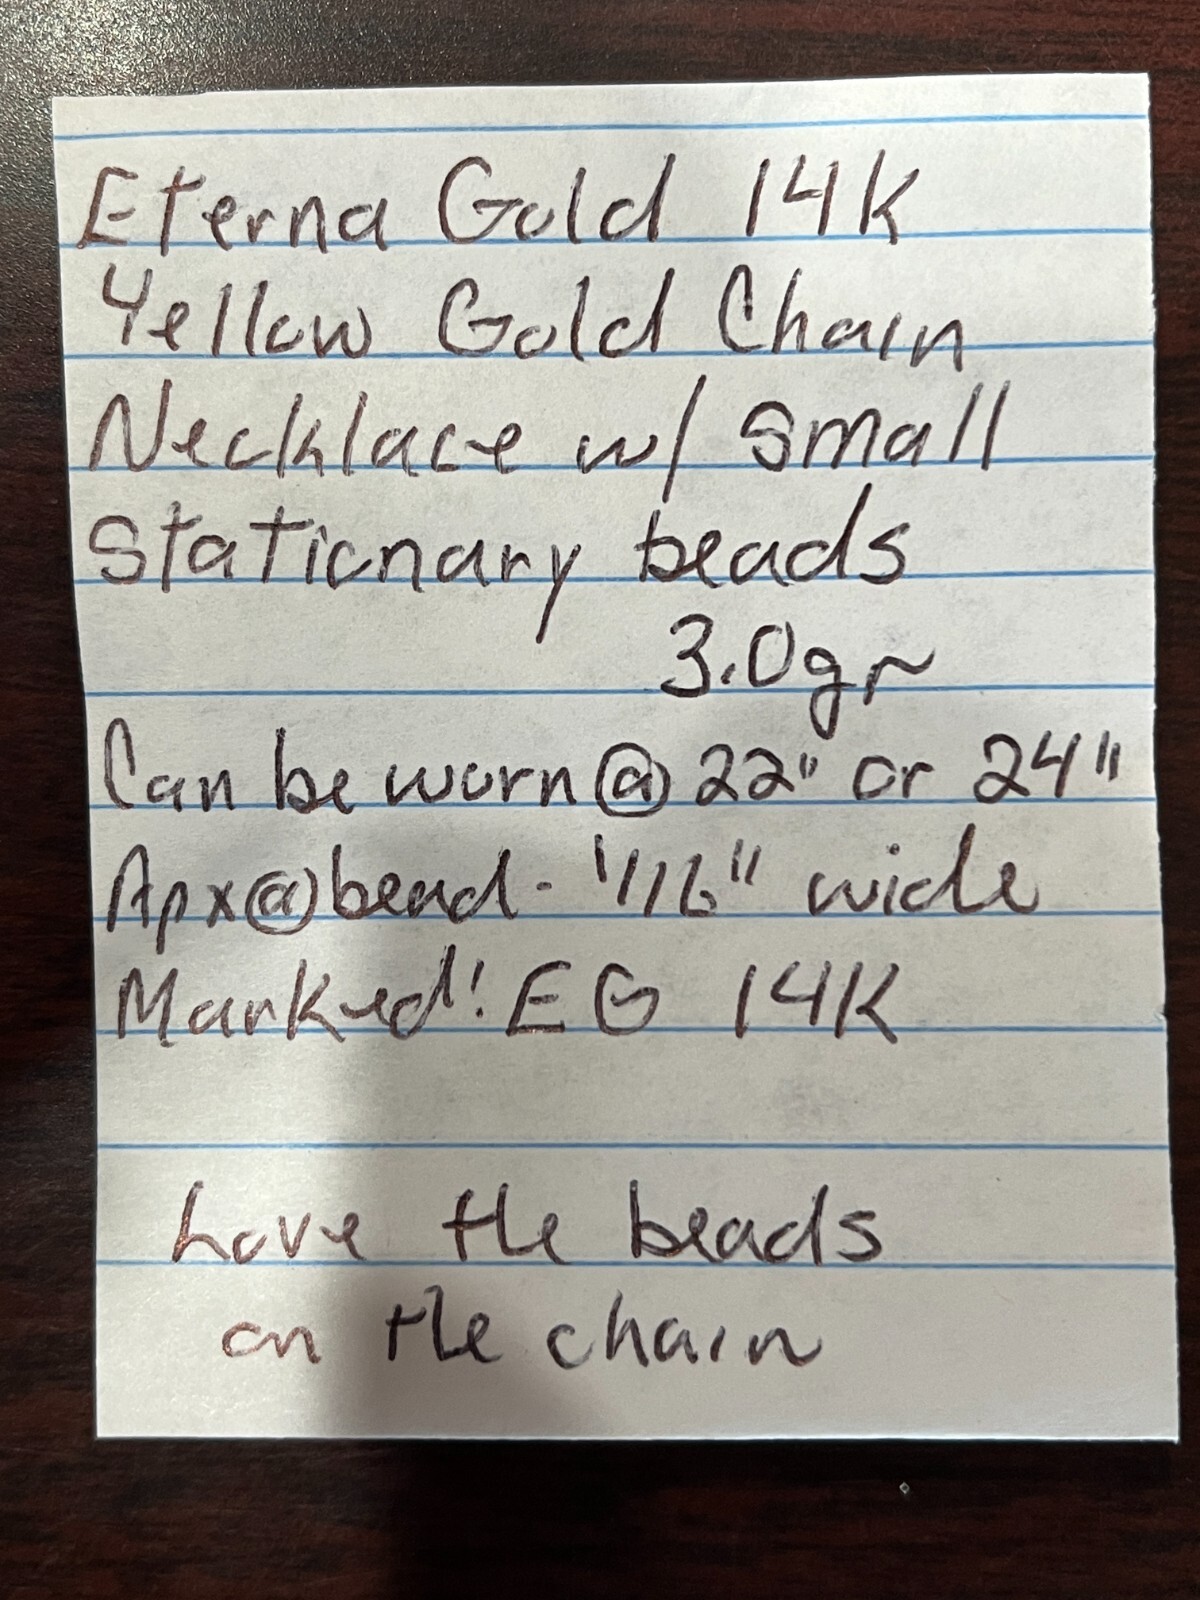 Eterna Gold 14K
Yellow Gold Chain
Necklace w/ small
Stationary beads
3.0gr
Can be worn @ 22" or 24"
Apx @ bead - 1/16" wide
Marked: EG 14K
Love the beads
on the chain